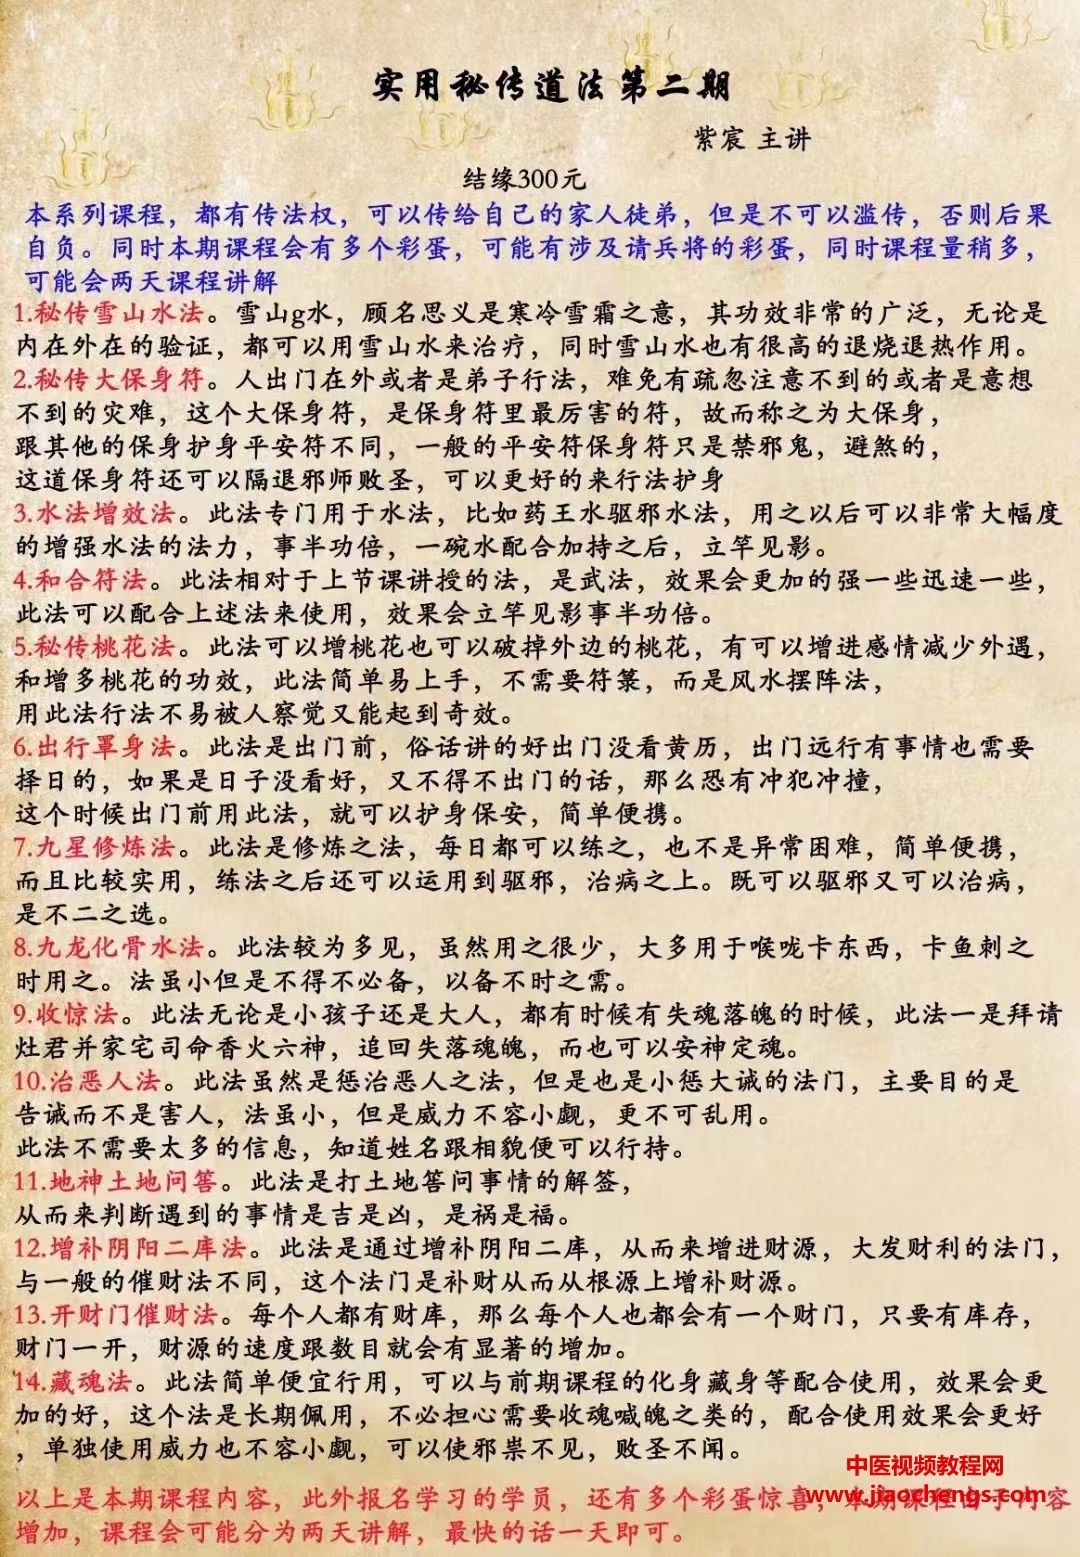 实用秘传道法第二期
紫宸 主讲
结缘300元
本系列课程，都有传法权，可以传给自己的家人徒弟，但是不可以滥传，否则后果
自负。同时本期课程会有多个彩蛋，可能有涉及请兵将的彩蛋，同时课程量稍多，
可能会两天课程讲解
1.秘传雪山水法。雪山g水，顾名思义是寒冷雪霜之意，其功效非常的广泛，无论是
内在外在的验证，都可以用雪山水来治疗，同时雪山水也有很高的退烧退热作用。
2.秘传大保身符。人出门在外或者是弟子行法，难免有疏忽注意不到的或者是意想
不到的灾难，这个大保身符，是保身符里最厉害的符，故而称之为大保身，
跟其他的保身护身平安符不同，一般的平安符保身符只是禁邪鬼，避煞的，
这道保身符还可以隔退邪师败圣，可以更好的来行法护身
3.水法增效法。此法专门用于水法，比如药王水驱邪水法，用之以后可以非常大幅度
的增强水法的法力，事半功倍，一碗水配合加持之后，立竿见影。
4.和合符法。此法相对于上节课讲授的法，是武法，效果会更加的强一些迅速一些，
此法可以配合上述法来使用，效果会立竿见影事半功倍。
5.秘传桃花法。此法可以增桃花也可以破掉外边的桃花，有可以增进感情减少外遇，
和增多桃花的功效，此法简单易上手，不需要符箓，而是风水摆阵法，
用此法行法不易被人察觉又能起到奇效。
6.出行罩身法。此法是出门前，俗话讲的好出门没看黄历，出门远行有事情也需要
择日的，如果是日子没看好，又不得不出门的话，那么恐有冲犯冲撞，
这个时候出门前用此法，就可以护身保安，简单便携。
7.九星修炼法。此法是修炼之法，每日都可以练之，也不是异常困难，简单便携，
而且比较实用，练法之后还可以运用到驱邪，治病之上。既可以驱邪又可以治病，
是不二之选。
8.九龙化骨水法。此法较为多见，虽然用之很少，大多用于喉咙卡东西，卡鱼刺之
时用之。法虽小但是不得不必备，以备不时之需。
9.收惊法。此法无论是小孩子还是大人，都有时候有失魂落魄的时候，此法一是拜请
灶君并家宅司命香火六神，追回失落魂魄，而也可以安神定魂。
10.治恶人法。此法虽然是惩治恶人之法，但是也是小惩大诫的法门，主要目的是
告诫而不是害人，法虽小，但是威力不容小觑，更不可乱用。
此法不需要太多的信息，知道姓名跟相貌便可以行持。
11.地神土地问筶。此法是打土地筶问事情的解签，
从而来判断遇到的事情是吉是凶，是祸是福。
12.增补阴阳二库法。此法是通过增补阴阳二库，从而来增进财源，大发财利的法门，
与一般的催财法不同，这个法门是补财从而从根源上增补财源。
13.开财门催财法。每个人都有财库，那么每个人也都会有一个财门，只要有库存，
财门一开，财源的速度跟数目就会有显著的增加。
14.藏魂法。此法简单便宜行用，可以与前期课程的化身藏身等配合使用，效果会更
加的好，这个法是长期佩用，不必担心需要收魂喊魄之类的，配合使用效果会更好
，单独使用威力也不容小觑，可以使邪祟不见，败圣不闻。
中医视频教程网
www.jiaochengs.com
以上是本期课程内容，此外报名学习的学员，还有多个彩蛋惊喜，本期课程由于内容
增加，课程会可能分为两天讲解，最快的话一天即可。